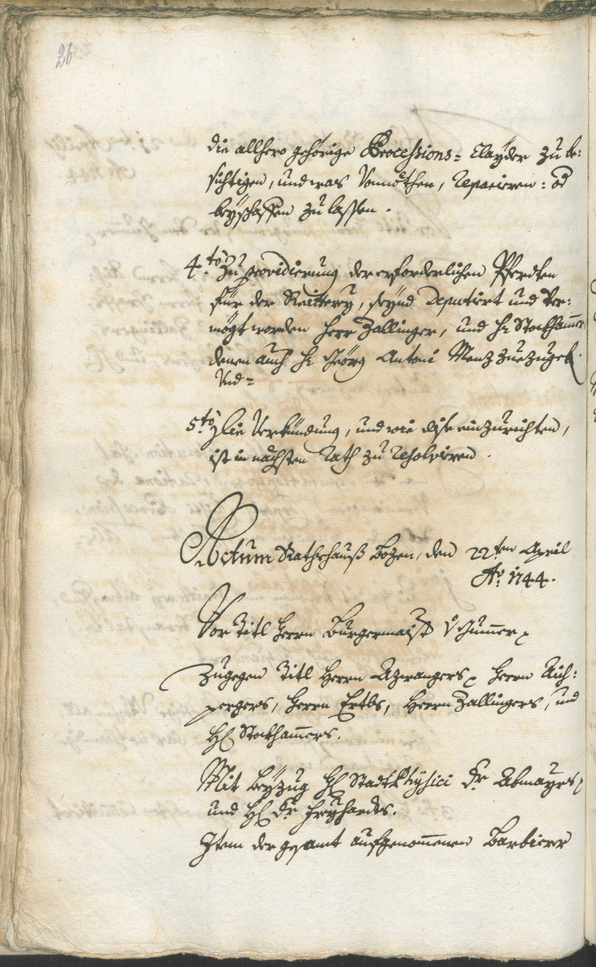 26
die allhero gehörige Processions= Claÿder zu be:
sichtigen, und was Vonnöthen, Reparieren: od
beÿschaffen zu lassen.
4.to Zu providierung der erforderlichen Pferdten
für der Reitterey, seynd Deputiert und Ver:
mögt worden Herr Zallinger, und H: Stockhamer
denen auch H: Geörg Antoni Menz zuezugeb.
Und=
5.to Die Verkündung, und wie dise einzurichten,
ist in nächsten Rath zu Resolvieren.
Actum Rathshauß Bozen, den 22ten April
Ao: 1744.
Vor Titl Herrn Burgermaistr
Zugegen Titl Herrn Azwangers Herrn Aich:
pergers, Herrn Ertls, Herrn Zallingers, und
H: Stockhamers.
Mit Beÿzug H: Stadt Physici Dr.
und H: Dr.
Item der gesamt aufgenomenen Barbierer